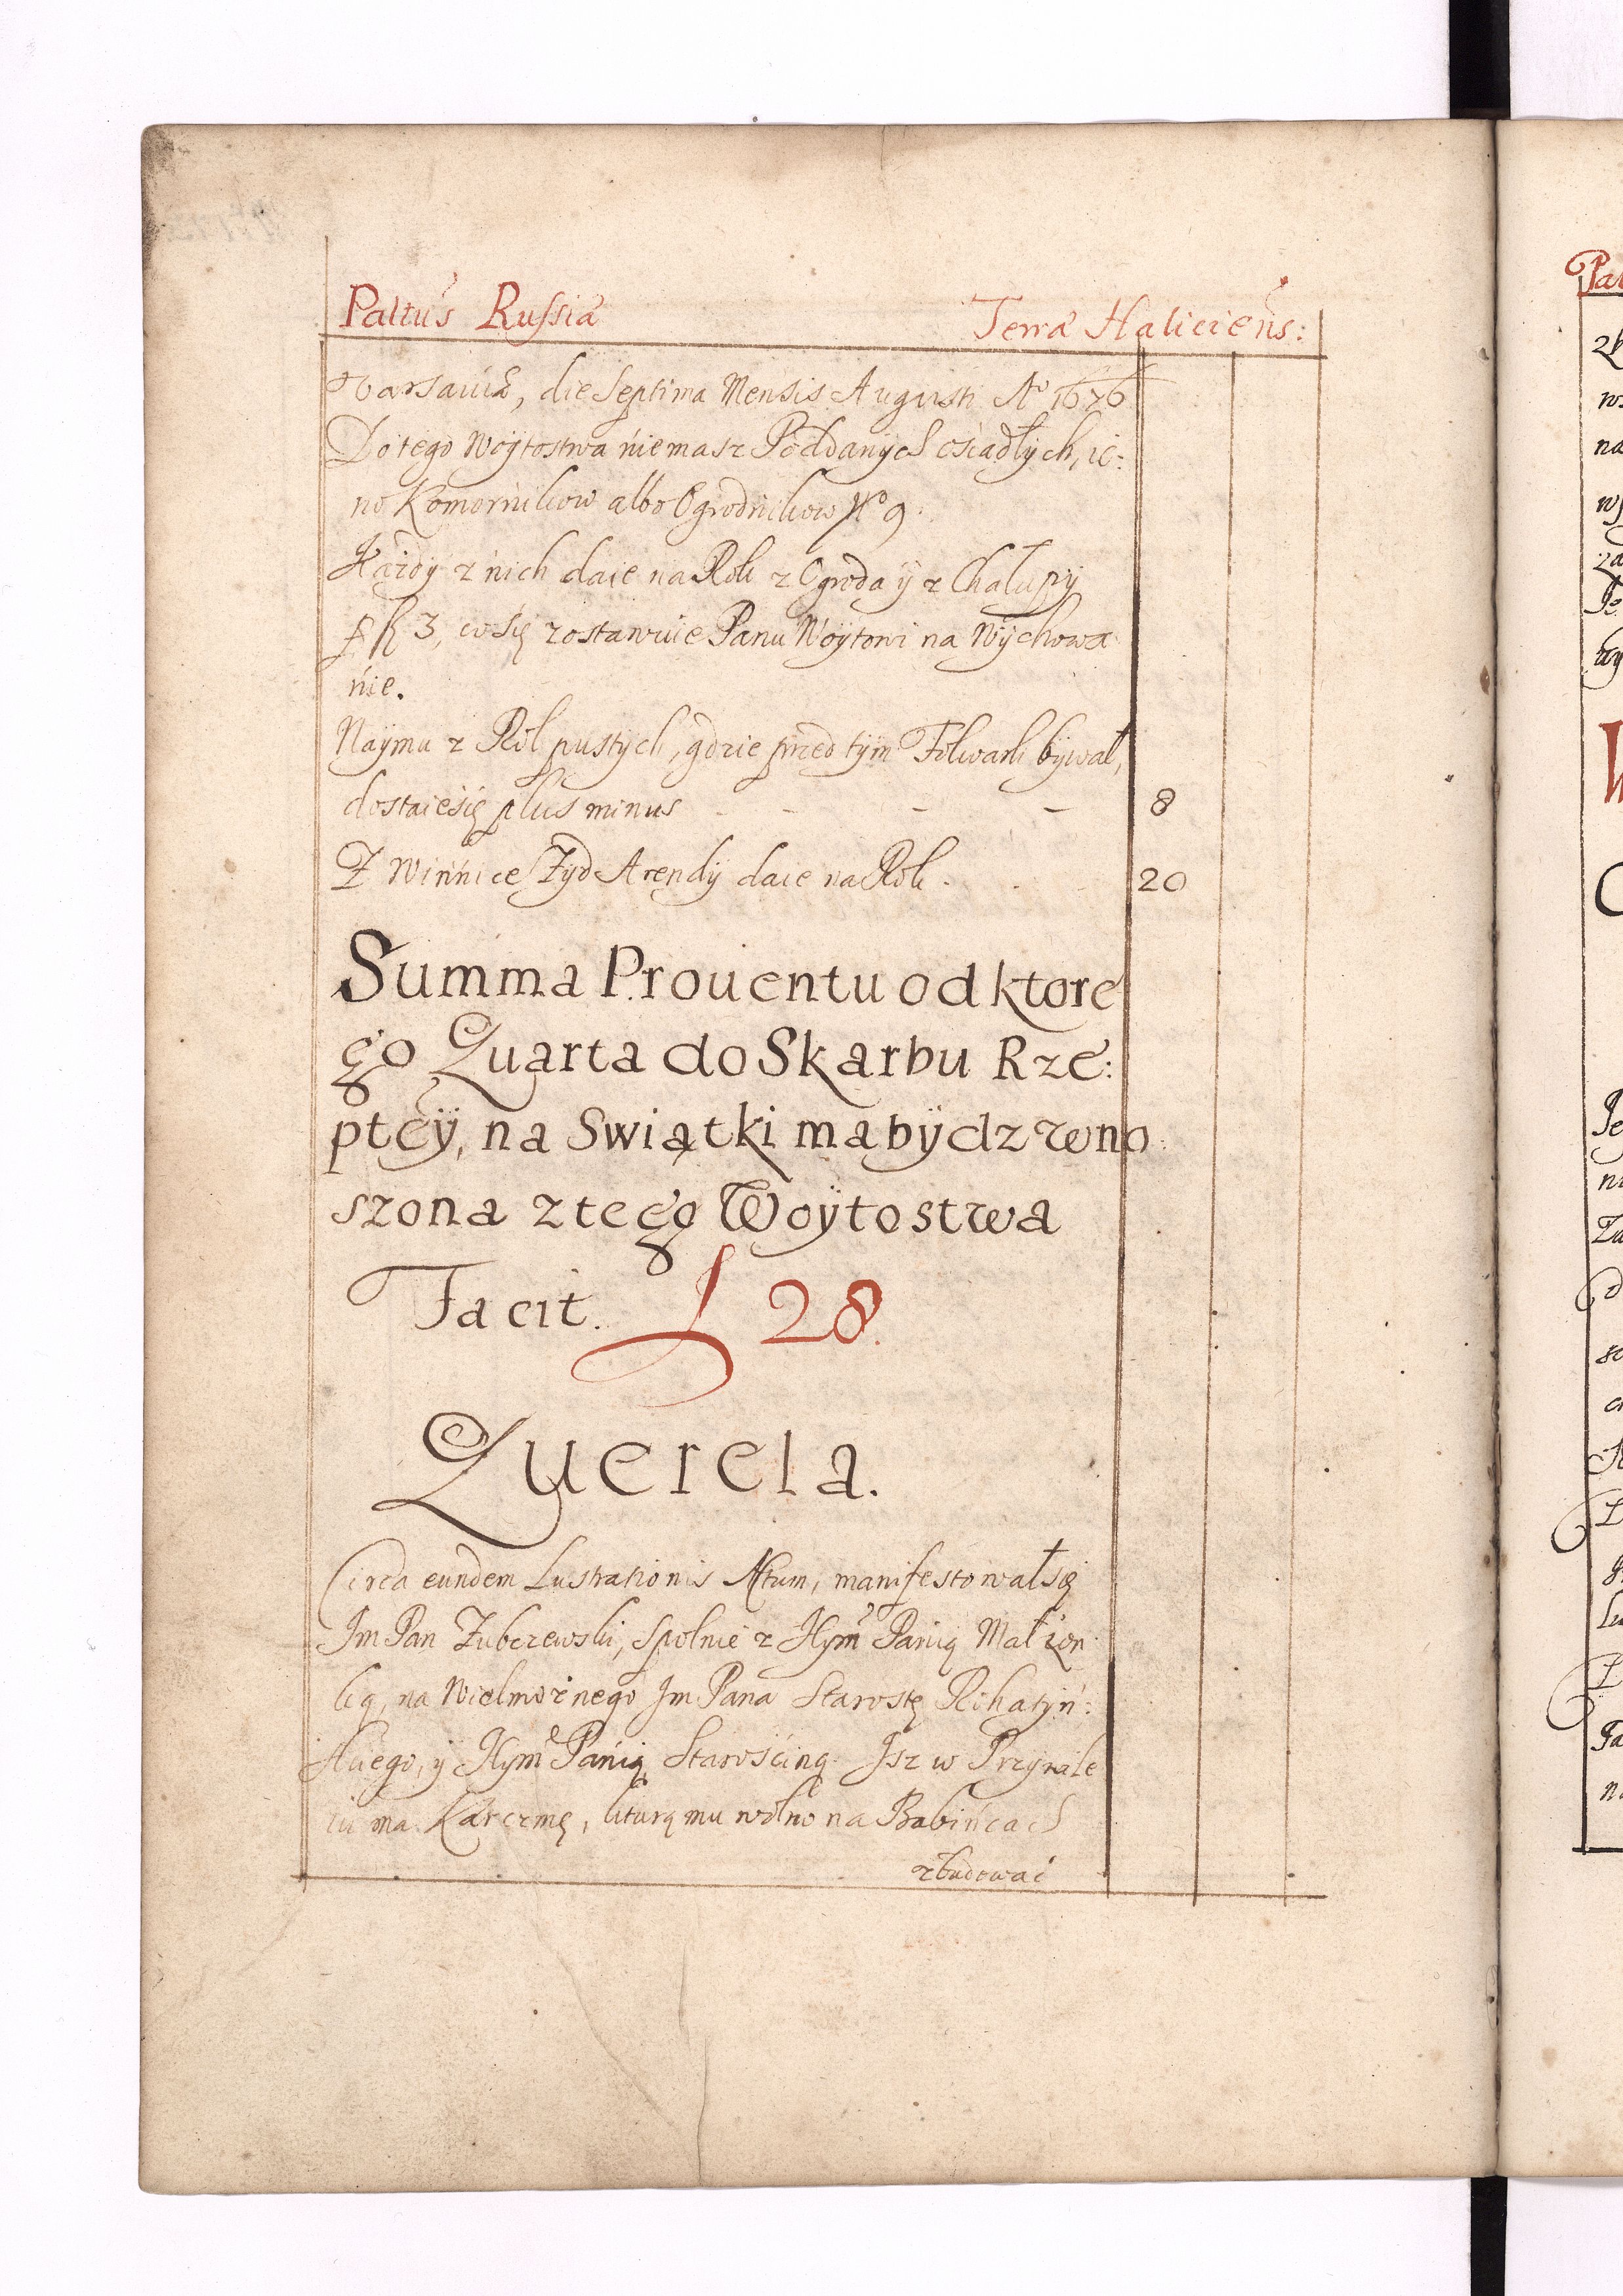 Pałtus Russiæ Terræ Haliciens:
Varsauiæ, die Septima Mensis Augusti Aº 1676
Do tego Woytostwa niemasz Poddanych osiadłych, ie:
no Komornikow albo Ogrodnikow Nº 9.
Kazdy z nich daie na Rok z Ogroda ÿ z Chałupÿ
3, co się zostawuie Panu Woÿtowi na Wÿchowa
nie.
Naÿmu z Rol pustych, gdzie przed tÿm Folwark bÿwał,
dostaie się plus minus - - - 8
Z Winnice Zÿd Arendÿ daie na Rok. 20
Summa Prouentu od ktore
go Quarta do Skarbu Rze:
ptcÿ, na Swiątki ma bÿdz wno
szona z tego Woÿtostwa
Facit. 28.
Querela.
Circa eundem Lustrationis Actum, manifestował się
Im Pan Zubczewski, spolnie z Jeym Panią Małzon
ką, na Wielmoznego Im Pana Starostę Rohatÿń:
skiego, ÿ Jeym Panią Starościną. Isz w Przywile
iu ma Karczmę, kturą mu wolno na Babińcach
zbudować